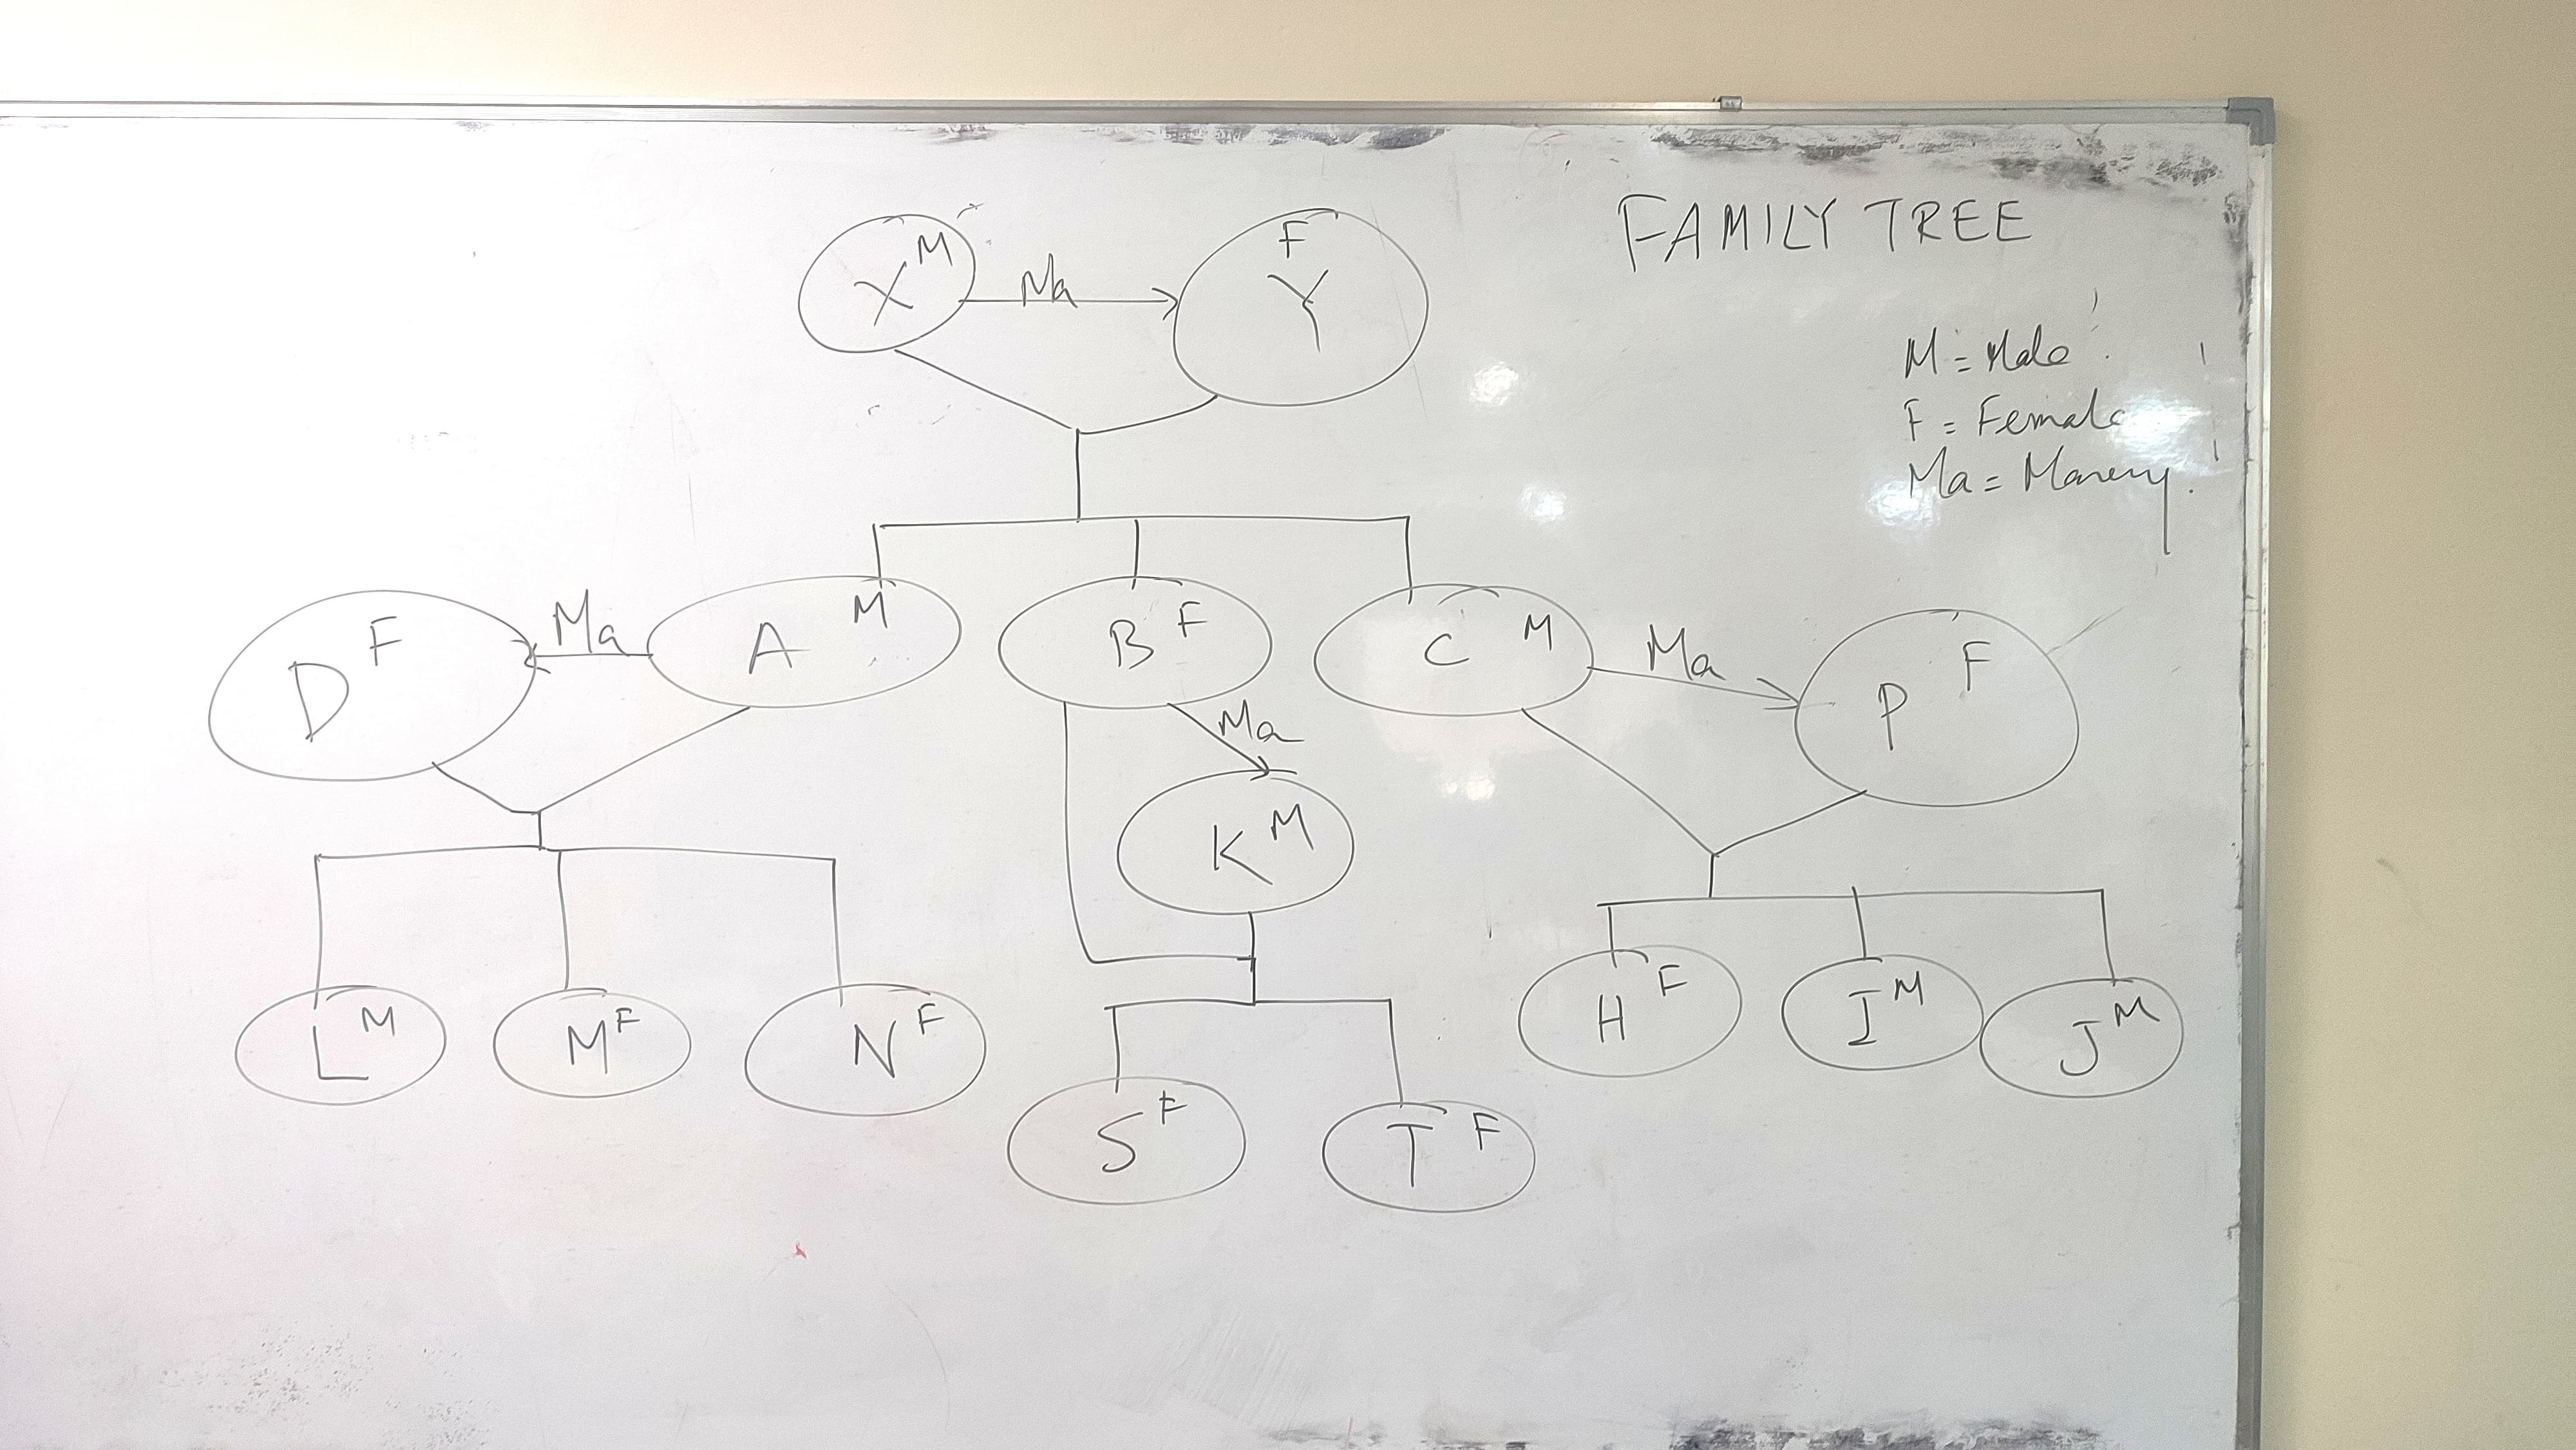 FAMILY TREE
M = Male
F = Female
Ma = Marery.
X M
Ma
F
Y
D F
Ma
A M
B F
C M
Ma
P F
Ma
K M
L M
M F
N F
H F
I M
J M
S F
T F